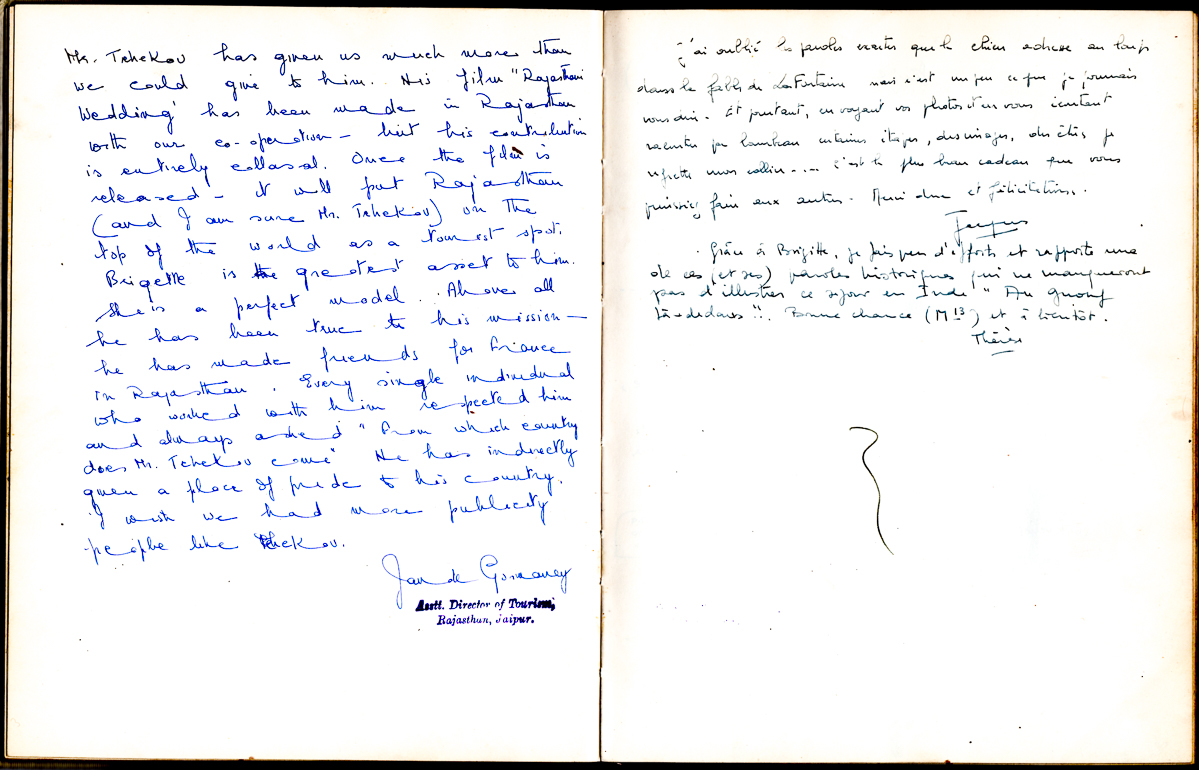 Mr. Tchekov has given us much more than
we could give to him. His film "Rajasthani
Wedding' has been made in Rajasthan
with our co-operation – but his contribution
is entirely collasal. Once the film is
released – it will put Rajasthan
(and I am sure Mr. Tchekov) on the
top of the world as a tourist spot.
Brigette is the greatest asset to him.
She is a perfect model. Above all
he has been true to his mission –
he has made friends for France
in Rajasthan. Every single individual
who worked with him respected him
and always asked "from which country
does Mr. Tchekov come" He has indirectly
given a place of pride to his country.
I wish we had more publicity
people like Tchekov.
Asstt. Director of Tourism,
Rajasthan, Jaipur.
j'ai oublié les paroles exactes que le chien adresse au loup
dans la fable de La Fontaine mais c'est un peu ce que je pourrais
vous dire. Et pourtant, en voyant vos photos et en vous écoutant
raconter certaines étapes, des visages, des je
regrette mon collier.... c'est le plus beau cadeau que vous
puissiez faire aux autres. Merci donc et félicitations.
Jacques
Grâce à Brigitte, je fais peu d'efforts et rapporte une
de ces (et ses) paroles historiques qui ne manqueront
pas d'illustrer ce séjour en Inde "Au
là-dedans". Bonne chance (M 13) et à bientôt.
Thérèse